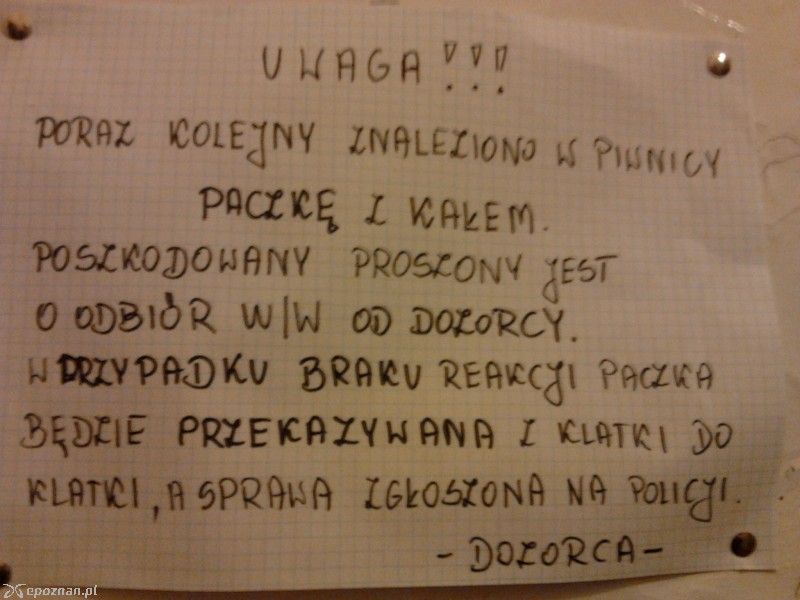 UWAGA!!!
PORAZ KOLEJNY ZNALEZIONO W PIWNICY
PACZKĘ Z KAŁEM.
POSZKODOWANY PROSZONY JEST
O ODBIÓR W/W OD DOZORCY.
W PRZYPADKU BRAKU REAKCJI PACZKA
BĘDZIE PRZEKAZYWANA Z KLATKI DO
KLATKI, A SPRAWA ZGŁOSZONA NA POLICJI.
- DOZORCA -
epoznan.pl